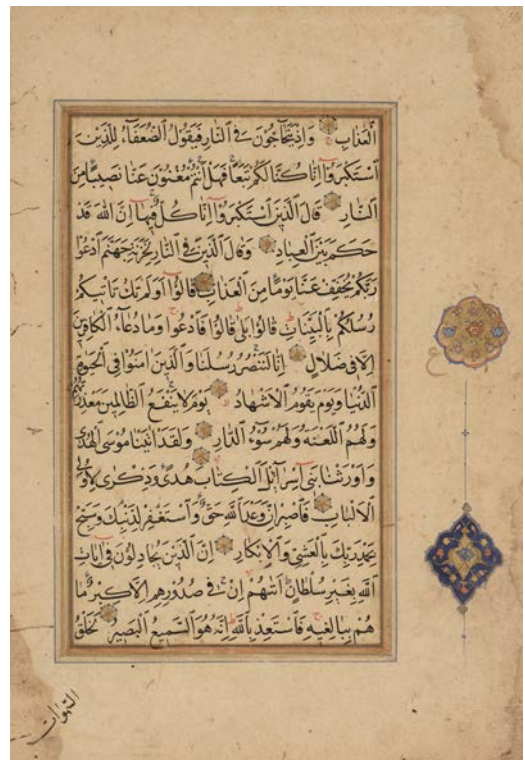 ٱلْعَذَابِ وَإِذْ يَتَحَآجُّونَ فِي ٱلنَّارِ فَيَقُولُ ٱلضُّعَفَآءُ لِلَّذِينَ
ٱسْتَكْبَرُوٓا إِنَّا كُنَّا لَكُمْ تَبَعًا فَهَلْ أَنْتُمْ مُغْنُونَ عَنَّا نَصِيبًا مِنَ
ٱلنَّارِ قَالَ ٱلَّذِينَ ٱسْتَكْبَرُوٓا إِنَّا كُلٌّ فِيهَا إِنَّ ٱللَّهَ قَدْ
حَكَمَ بَيْنَ ٱلْعِبَادِ وَقَالَ ٱلَّذِينَ فِي ٱلنَّارِ لِخَزَنَةِ جَهَنَّمَ ٱدْعُوا
رَبَّكُمْ يُخَفِّفْ عَنَّا يَوْمًا مِنَ ٱلْعَذَابِ قَالُوٓا أَوَلَمْ تَكُ تَأْتِيكُمْ
رُسُلُكُمْ بِٱلْبَيِّنَاتِ قَالُوا بَلَىٰ قَالُوا فَٱدْعُوا وَمَا دُعَآءُ ٱلْكَافِرِينَ
إِلَّا فِي ضَلَالٍ إِنَّا لَنَنْصُرُ رُسُلَنَا وَٱلَّذِينَ اٰمَنُوا فِي ٱلْحَيٰوةِ
ٱلدُّنْيَا وَيَوْمَ يَقُومُ ٱلْأَشْهَادُ يَوْمَ لَا يَنْفَعُ ٱلظَّالِمِينَ مَعْذِرَتُهُمْ
وَلَهُمُ ٱللَّعْنَةُ وَلَهُمْ سُوٓءُ ٱلدَّارِ وَلَقَدْ اٰتَيْنَا مُوسَى ٱلْهُدَىٰ
وَأَوْرَثْنَا بَنِيٓ إِسْرَآئِلَ ٱلْكِتَابَ هُدًى وَذِكْرَىٰ لِأُولِي
ٱلْأَلْبَابِ فَٱصْبِرْ إِنَّ وَعْدَ ٱللَّهِ حَقٌّ وَٱسْتَغْفِرْ لِذَنْبِكَ وَسَبِّحْ
بِحَمْدِ رَبِّكَ بِٱلْعَشِيِّ وَٱلْإِبْكَارِ إِنَّ ٱلَّذِينَ يُجَادِلُونَ فِيٓ اٰيَاتِ
ٱللَّهِ بِغَيْرِ سُلْطَانٍ أَتٰىهُمْ إِنْ فِي صُدُورِهِمْ إِلَّا كِبْرٌ مَا
هُمْ بِبَالِغِيهِ فَٱسْتَعِذْ بِٱللَّهِ إِنَّهُ هُوَ ٱلسَّمِيعُ ٱلْبَصِيرُ لَخَلْقُ
السَّمٰوَاتِ